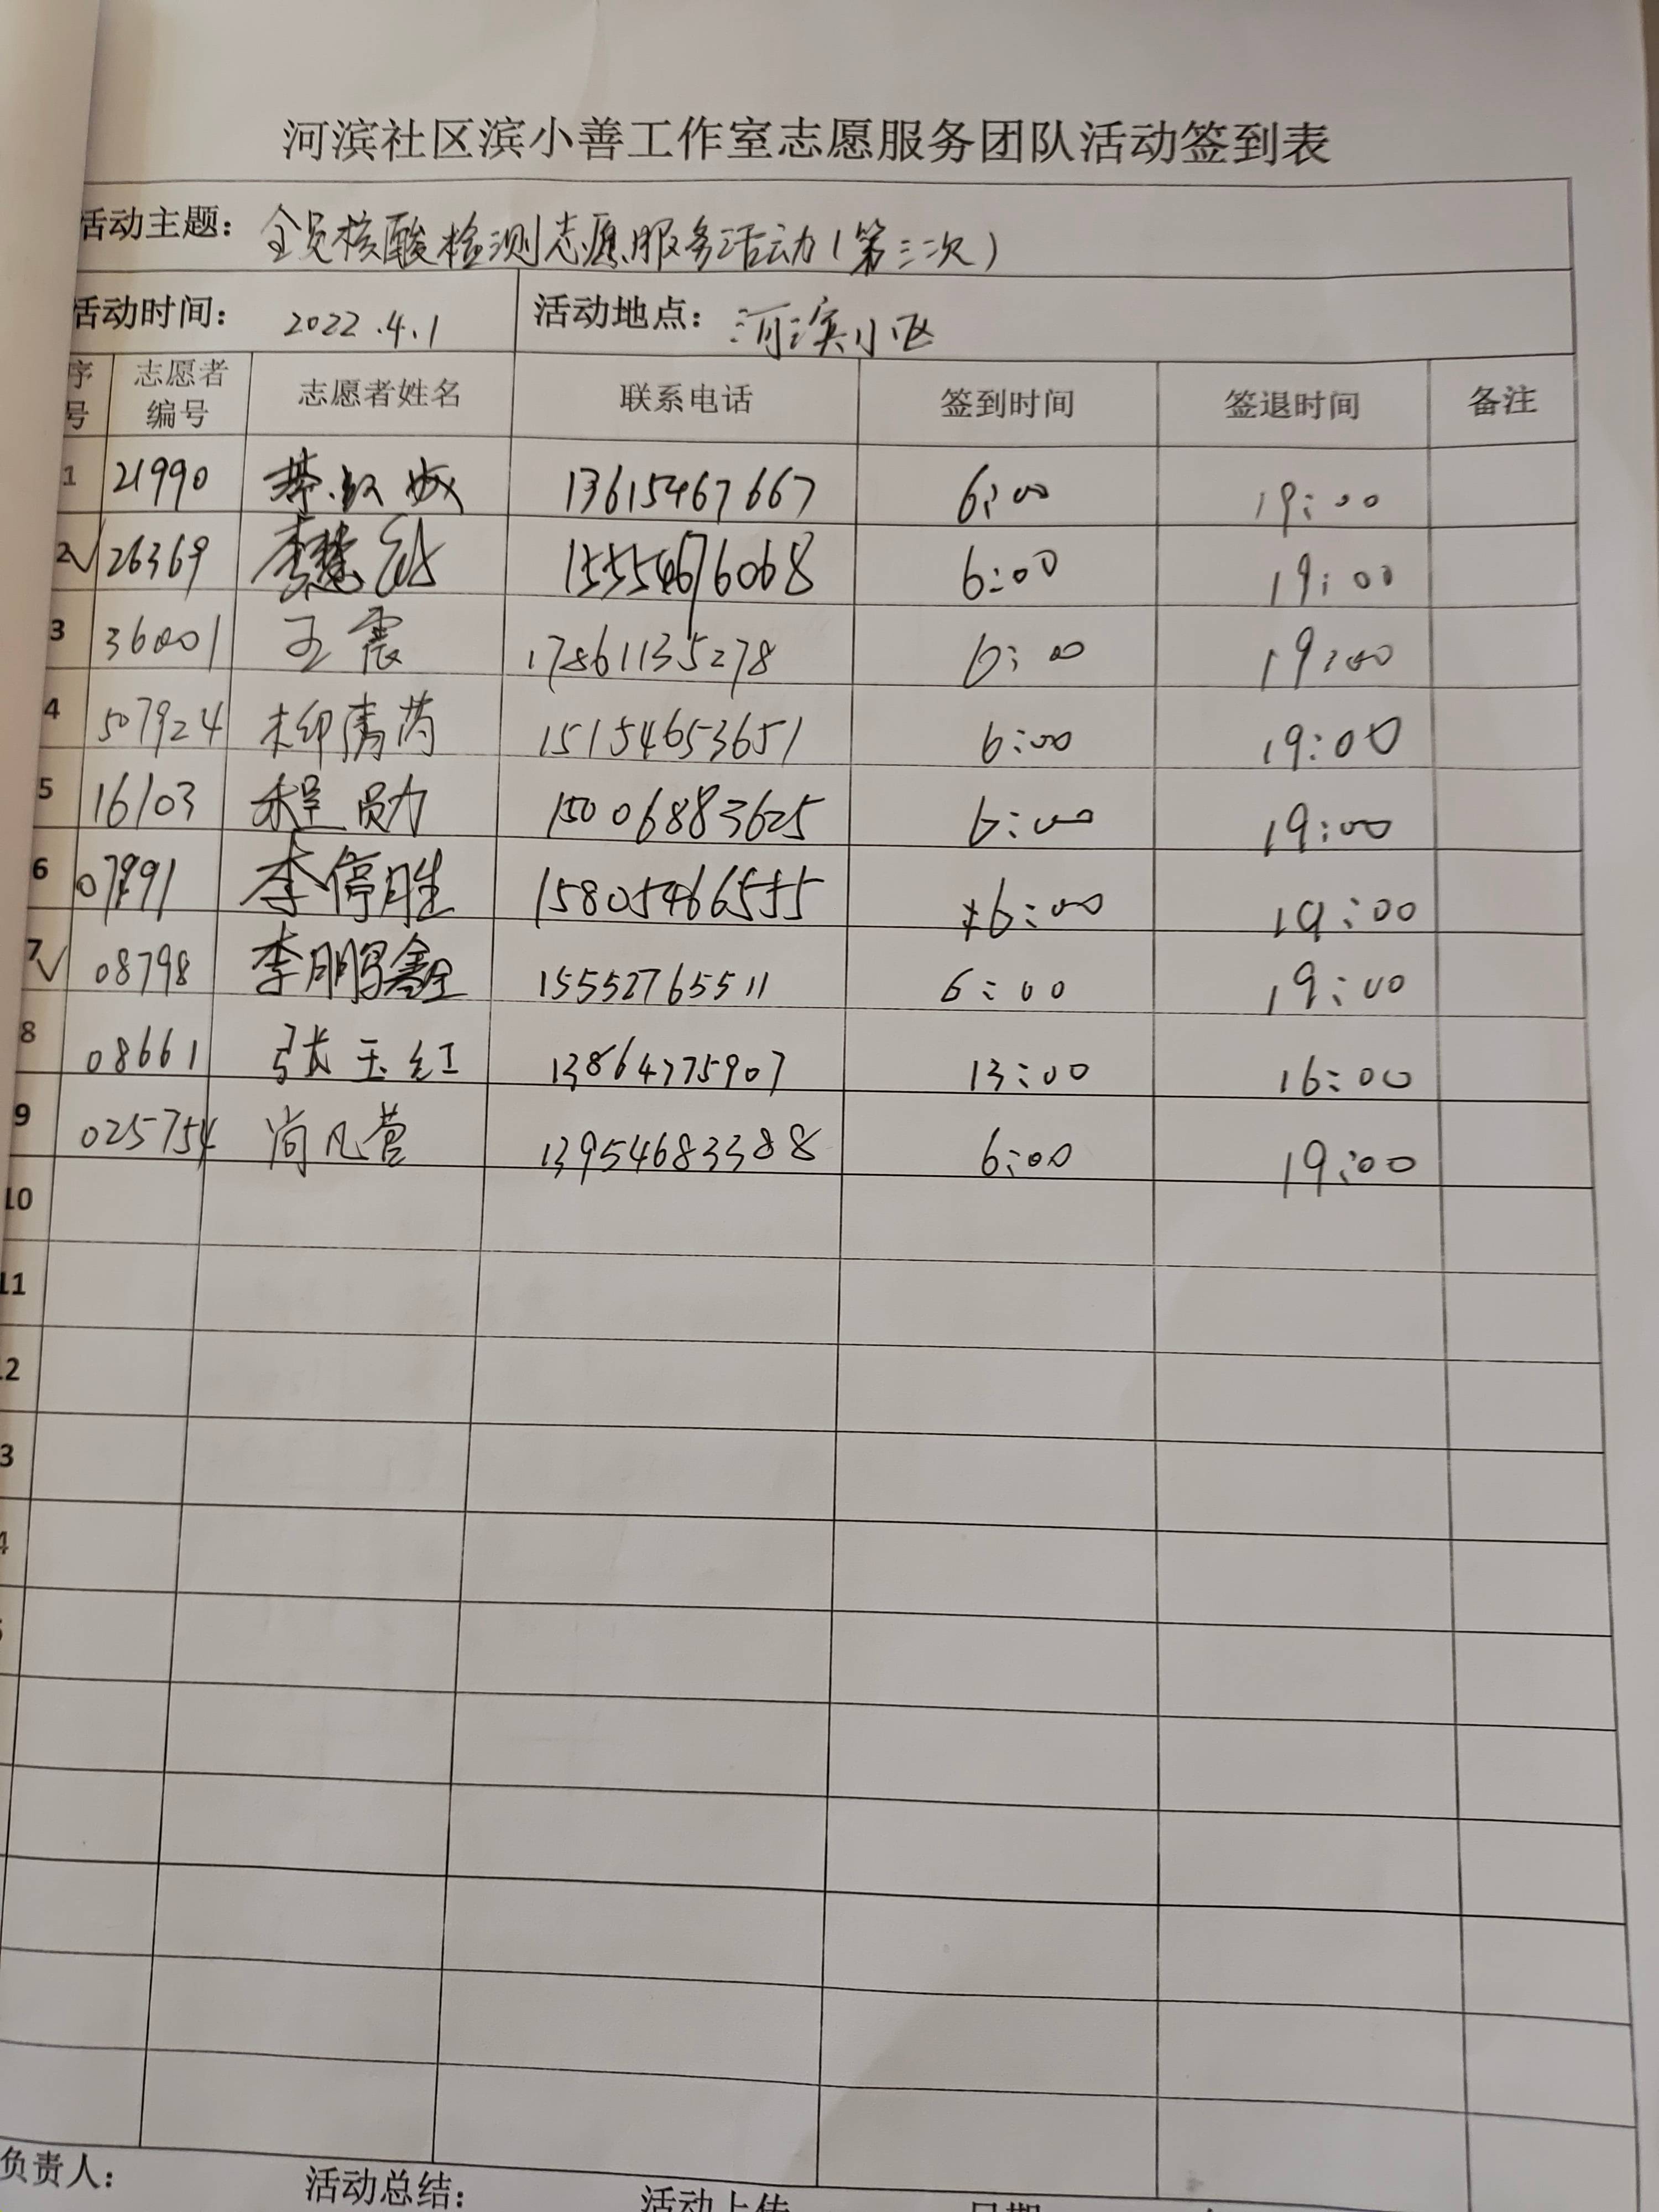 河滨社区滨小善工作室志愿服务团队活动签到表
活动主题：全员核酸检测志愿服务活动（第三次）
活动时间：2022.4.1 活动地点：河滨小区
序号 志愿者编号 志愿者姓名 联系电话 签到时间 签退时间 备注
1 21990 13615467667 6:00 19:00
2√ 26369 李慧 15554676068 6:00 19:00
3 36001 王震 17861135278 6:00 19:00
4 507924 柳清芮 15154653651 6:00 19:00
5 16103 程勋 15006883625 6:00 19:00
6 07991 李停胜 15805466555 6:00 19:00
7√ 08798 李鹏鑫 15552765511 6:00 19:00
8 08661 张玉红 13864775907 13:00 16:00
9 025754 尚凡营 13954683388 6:00 19:00
10
11
12
3
4
负责人： 活动总结： 活动上传 日期